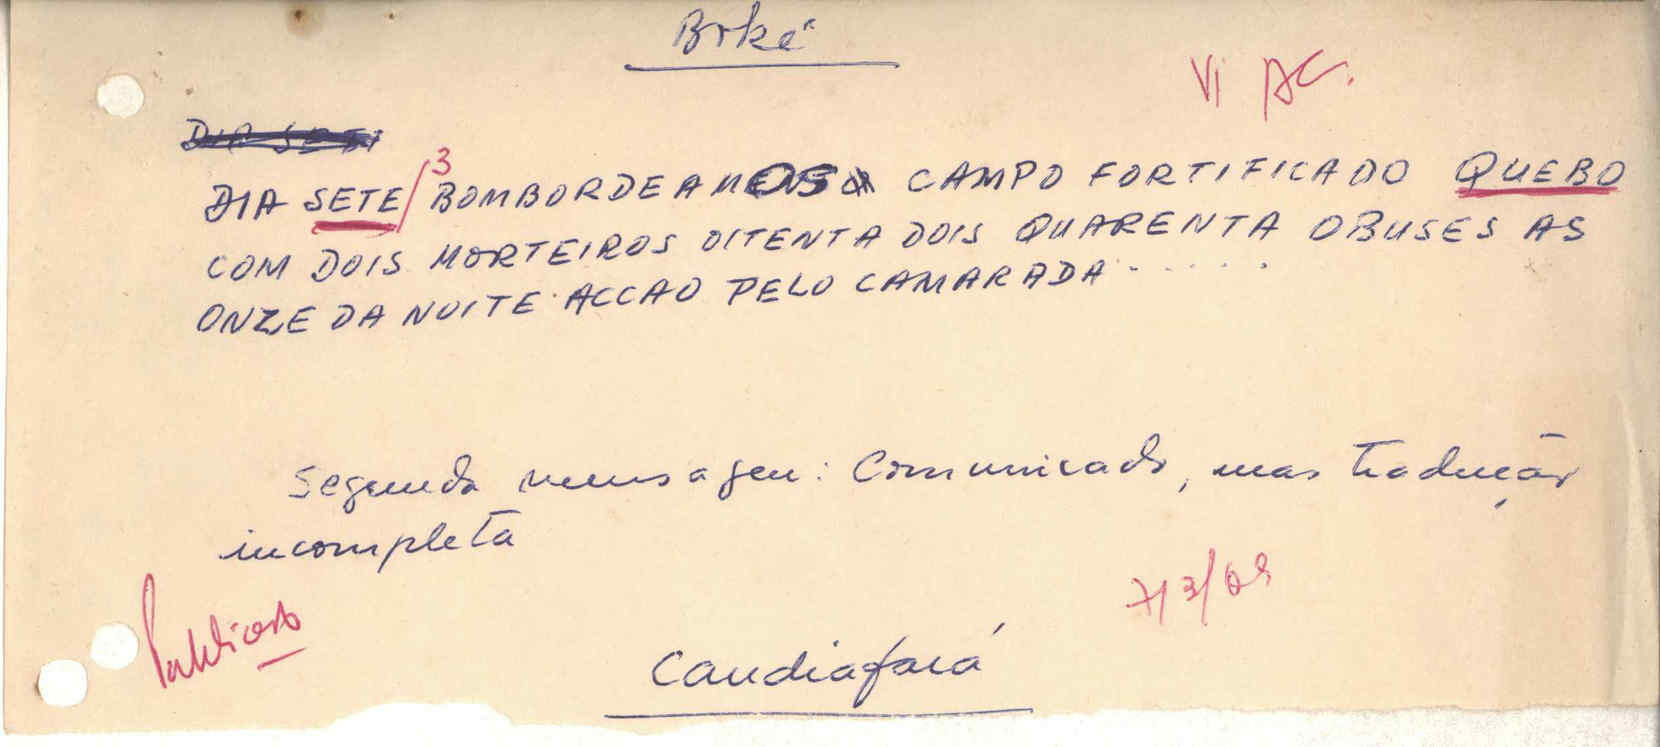 Boké
VI AC.
DIA SETE
DIA SETE/3 BOMBORDEAMOS O CAMPO FORTIFICADO QUEBO
COM DOIS MORTEIROS OITENTA DOIS QUARENTA OBUSES AS
ONZE DA NOITE. ACCAO PELO CAMARADA . . . . .
Segunda mensagem: Comunicado, mas tradução
incompleta
7/3/69
Publicado
Candiafará